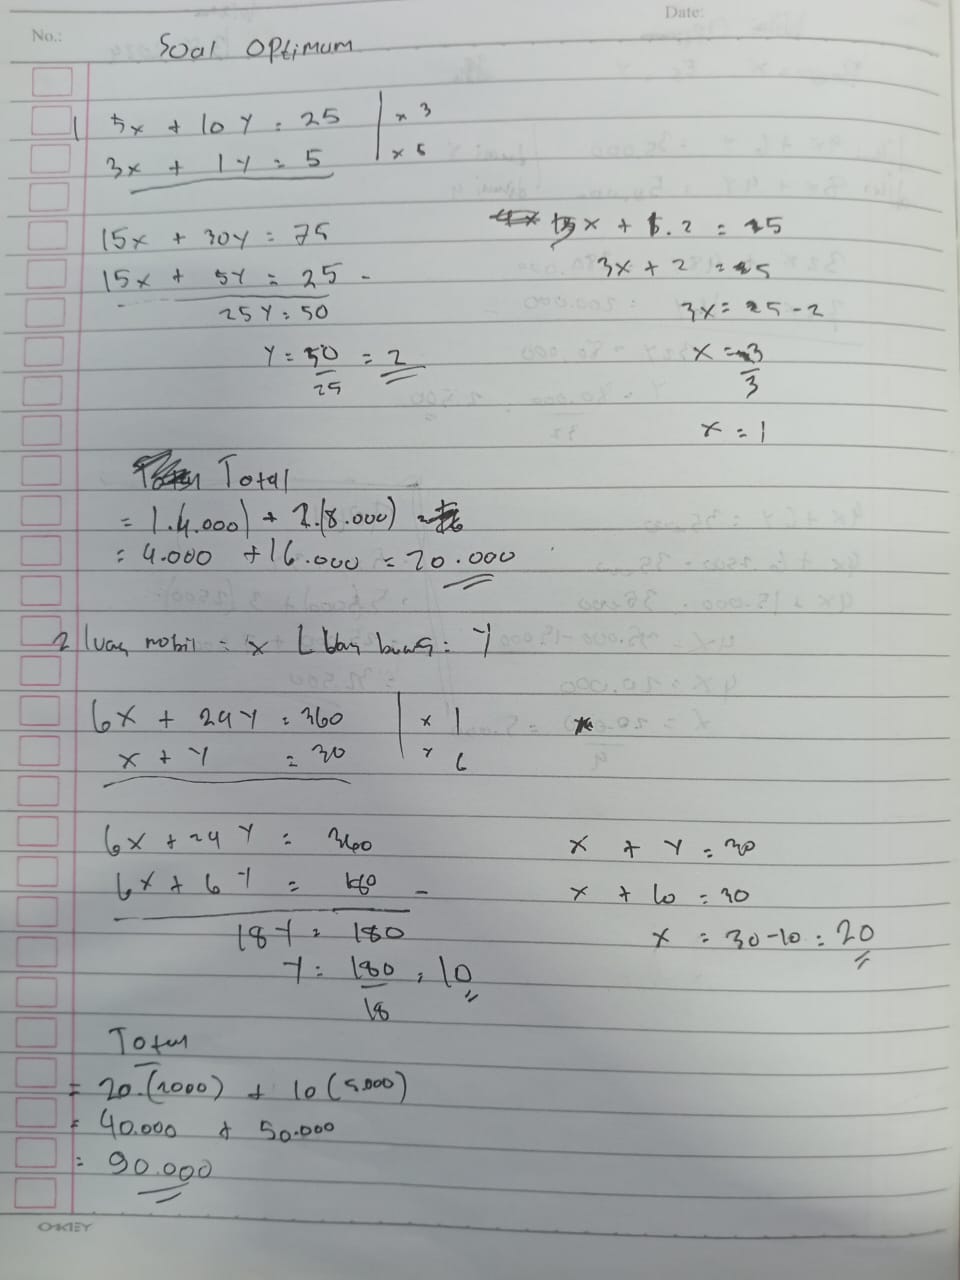 No.:
Date:
Soal Optimum
1 5x + 10y = 25 | x 3
3x + 1y = 5 | x 5
15x + 30y = 75
15x + 5y = 25 -
25y = 50
y = 50/25 = 2
3x + 1.2 = 5
3x + 2 = 5
3x = 5 - 2
x = 3/3
x = 1
Total
= 1.4.000) + 2.(8.000) =
= 4.000 + 16.000 = 20.000
2 luas mobil = x : y
6x + 24y = 360 | x 1
x + y = 30 | x 6
6x + 24y = 360
6x + 6y = 180 -
18y = 180
y = 180/18 = 10
x + y = 30
x + 10 = 30
x = 30-10 = 20
Total
= 20.(2000) + 10(5.000)
= 40.000 + 50.000
= 90.000
OKEY